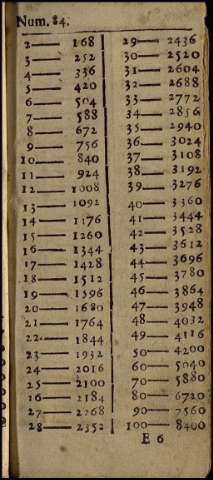 Num. 84.
2— 168
3— 252
4— 336
5— 420
6— 504
7— 588
8— 672
9— 756
10— 840
11— 924
12— 1008
13— 1092
14— 1176
15— 1260
16— 1344
17— 1428
18— 1512
19— 1596
20— 1680
21— 1764
22— 1844
23— 1932
24— 2016
25— 2100
26— 2184
27— 2268
28— 2352
29— 2436
30— 2520
31— 2604
32— 2688
33— 2772
34— 2856
35— 2940
36— 3024
37— 3108
38— 3192
39— 3276
40— 3360
41— 3444
42— 3528
43— 3612
44— 3696
45— 3780
46— 3864
47— 3948
48— 4032
49— 4116
50— 4200
60— 5040
70— 5880
80— 6720
90— 7560
100— 8400
E 6